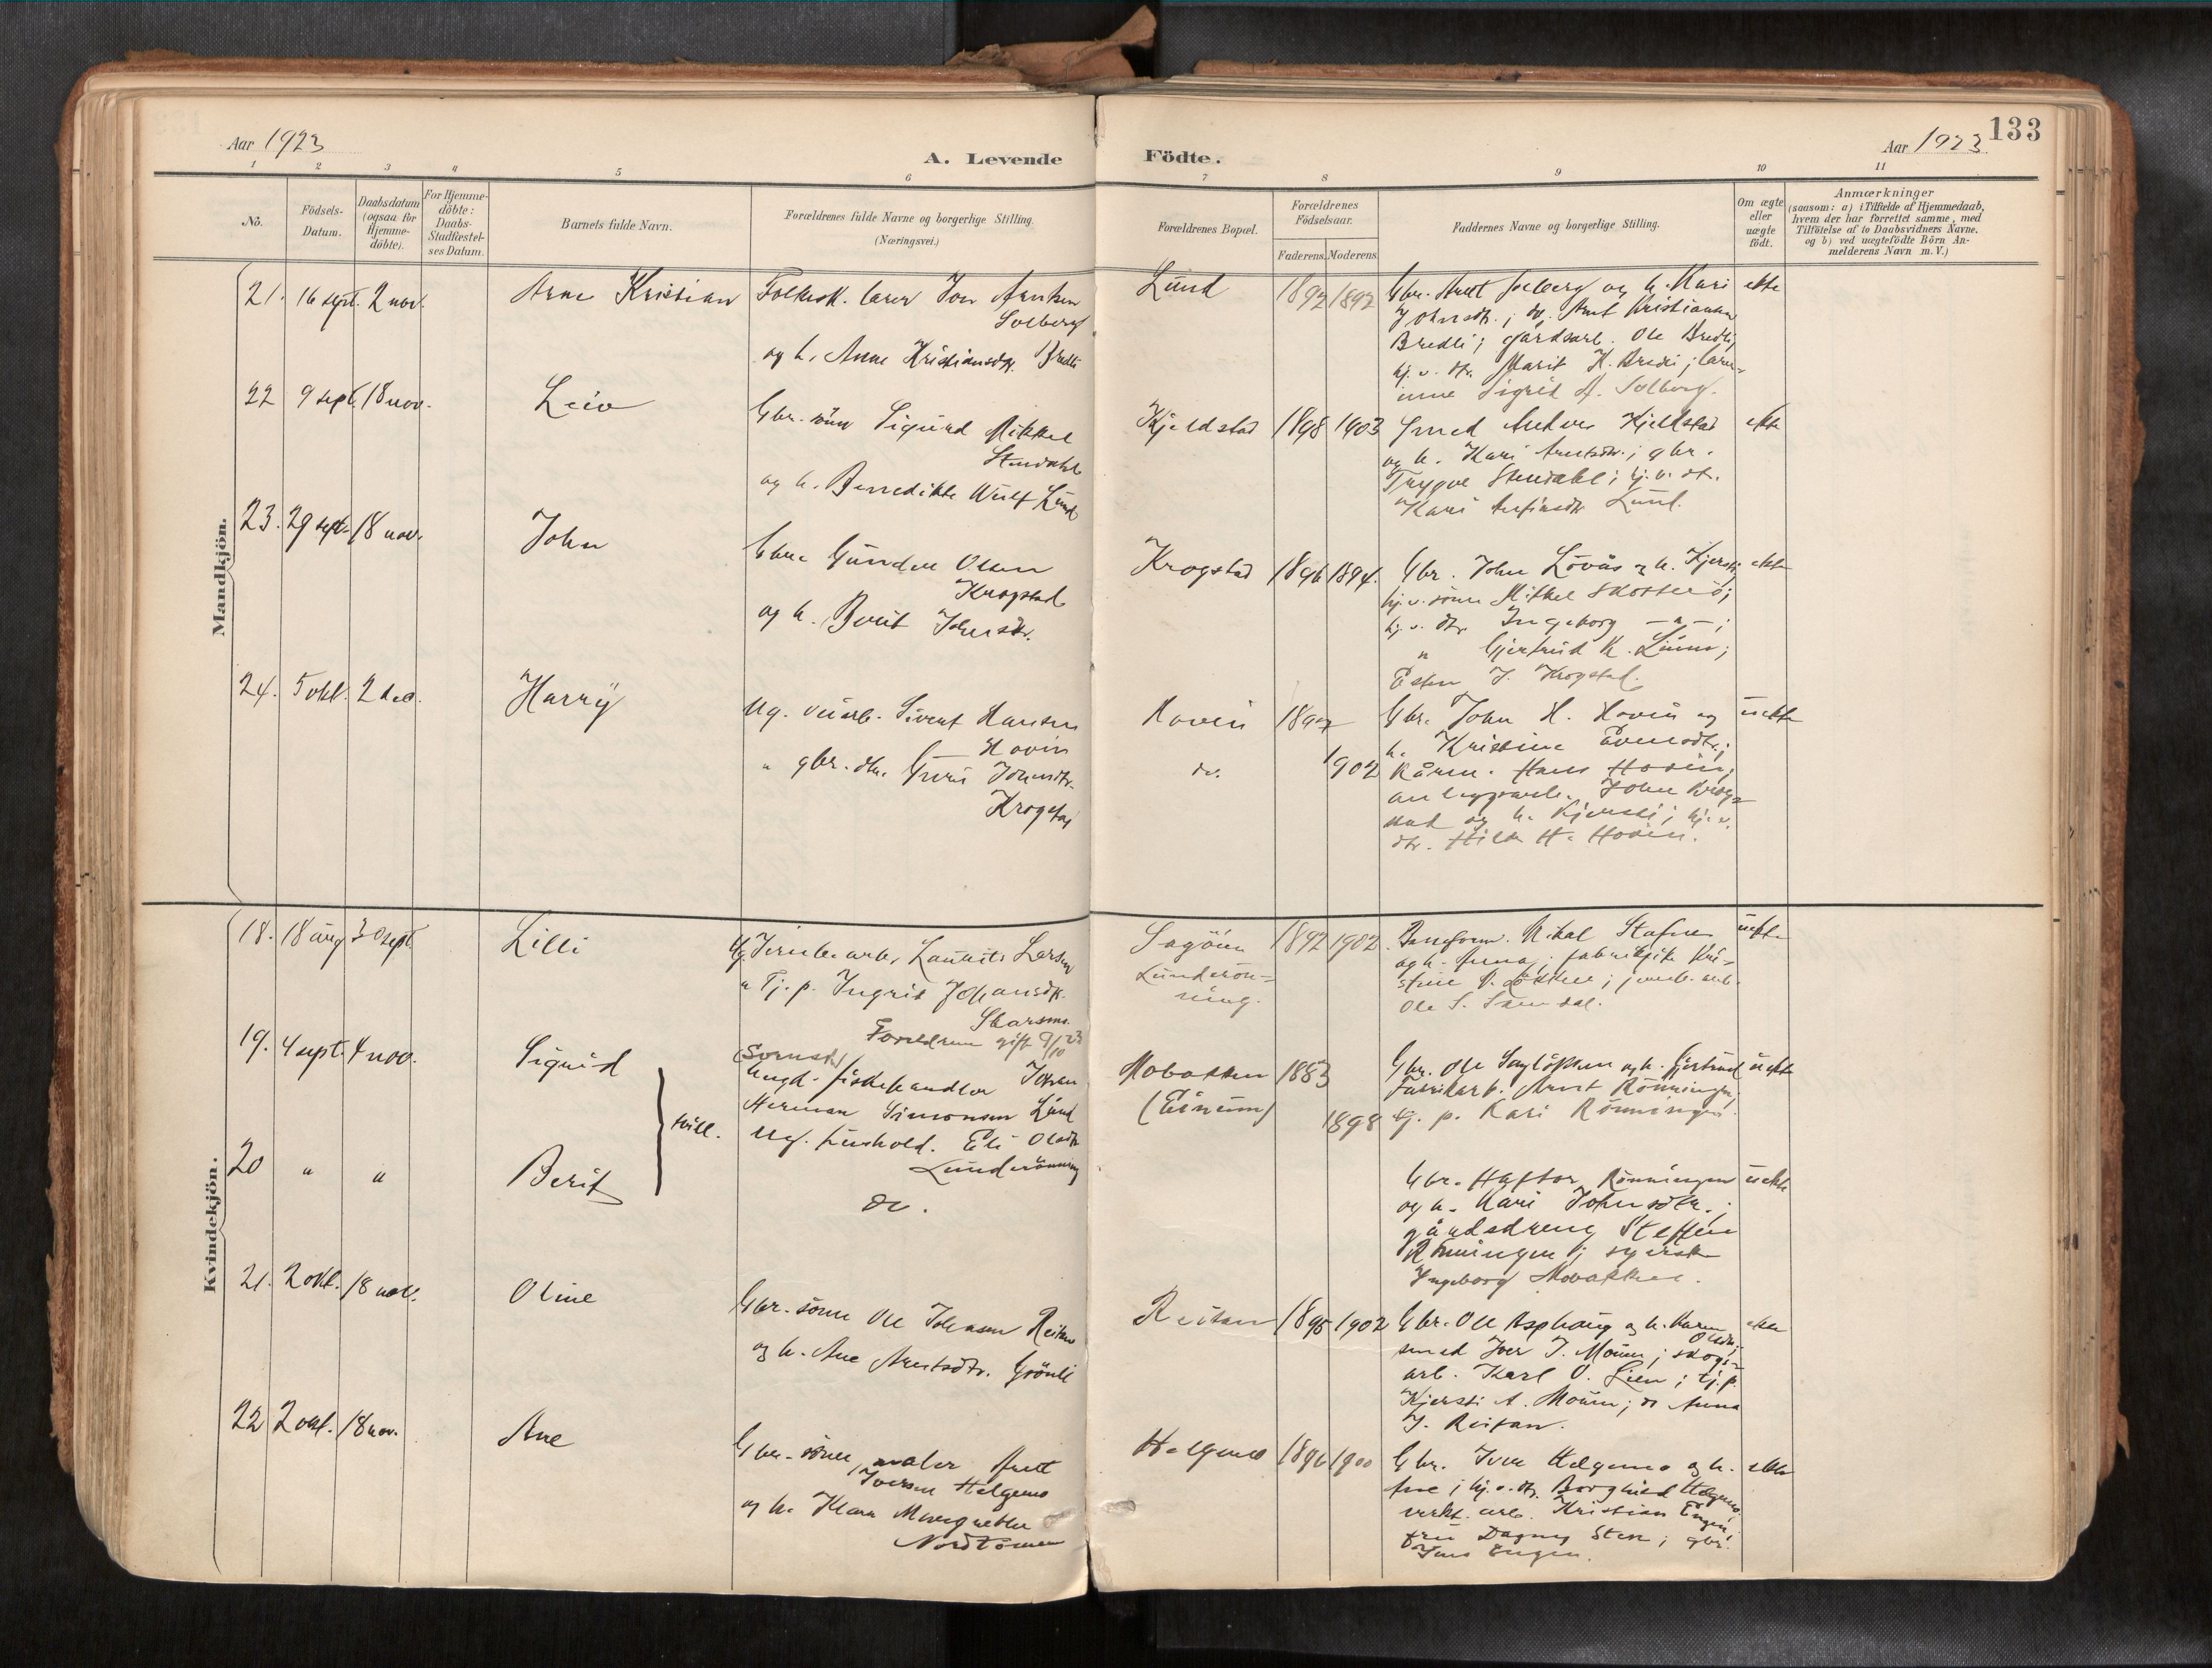 Aar 1923
A. Levende
Födte.
Aar 1923
133
1 2 3 4 5 6 7 8 9 10 11
No.
Födsels-
Datum.
Daabsdatum
(ogsaa for
Hjemme-
döbte).
For Hjemme-
döbte:
Daabs-
Stadfæstel-
ses Datum.
Barnets fulde Navn.
Forældrenes fulde Navne og borgerlige Stilling.
(Næringsvei.)
Forældrenes Bopæl.
Forældrenes
Födselsaar.
Faderens. Moderens.
Faddernes Navne og borgerlige Stilling.
Om ægte
eller
uægte
födt.
Anmærkninger
(saasom: a) i Tilfælde af Hjemmedaab,
hvem der har forrettet samme, med
Tilföielse af to Daabsvidners Navne.
og b) ved uægtefödte Börn An-
melderens Navn m.V.)
Mandkjön.
21. 16 sept. 2 nov.
Arne Kristian
Folkesk. lærer Jon Arntsen
Solberg
og h. Anne Kristiansdtr. Bredli
Lund
1892 1892
Gbr. Arnt Solberg og h. Kari
Johnsdtr.; do. Arnt Kristiansen
Bredli; gårdsarb. Ole Bredli;
hj. v. dtr. Marit K. Bredli; lærer-
inne Sigrid A. Solberg.
ekte
22 9 sept. 18 nov.
Leiv
Gbr. sönn Sigurd Mikkel
Stendahl
og h. Benedikte Wulf Lund
Kjeldstad
1898 1903
Smed Kjeldstad
og h. Kari Arntsdtr.; gbr.
Trygve Stendahl; hj. v. dtr.
Kari Lund.
ekte
23. 29 sept. 18 nov.
John
Gbr. Gunder Olsen
Krogstad
og h. Berit Johnsdtr.
Krogstad
1896 1894.
Gbr. John Lövås og h. Kjersti;
hj. v. sönn Mikkel
hj. v. dtr. Ingeborg — " —;
" Gjertrud K. Lunn;
Esten J. Krogstad.
ekte
24. 5 okt. 2 dec.
Harry
Ug. Sivert Hansen
Hovin
" gbr. dtr. Guri Johnsdtr.
Krogstad
Hovin
do.
1902
Gbr. John H. Hovin og
h. Kristine Evensdtr.;
Hans Hovin;
anleggsarb. John Krog-
stad og h. Kjersti; hj. v.
dtr. Hilda H. Hovin.
uekte
Kvindekjön.
18. 18 aug. 30 sept.
Lilli
Ug. Jernb. arb. Laurits Larsen
" Tj. p. Ingrid Johansdtr.
Foreldrene gift 9/10 23
Sagöien
Lunderön-
ning.
1892 1902.
Mikal Stafne
og h. Anna; fabrikkpike Kri-
stine Lökken; jernb. arb.
Ole S.
uekte
19. 4 sept. 4 nov.
Sigrid
(Svensk)
Ungd. fiskehandler Johan
Herman Simonsen Lund
Ug. hushold. Eli Olsdtr
Lunderönning
tvill.
Mobakken
1883
1898
Gbr. Ole og h. Gjertrud
Fabrikarb. Arnt Rönningen;
tj. p. Kari Rönningen.
uekte
20 " "
Berit
do.
Gbr. Haftor Rönningen
og h. Kari Johnsdtr.;
gårdsdreng Steffen
Rönningen; syerske
Ingeborg Mobakken.
uekte
21. 2 okt. 18 nov.
Oline
Gbr. sönn Ole Johnsen Reitan
og h. Ane Arntsdtr. Grönli
Reitan
1895 1902
Gbr. Ole Asphaug og h. Karen
Olsdtr;
smed Iver J. Moum; skogs-
arb. Karl O. Lien; tj. p.
Kjersti A. Moum; do Anna
J. Reitan.
ekte
22 2 okt. 18 nov.
Ane
Gbr. sönn, maler Arnt
Iversen Helgemo
og h. Klara Margrethe
Nordtömme
Helgemo
1896 1900
Gbr. Iver Helgemo og h.
Ane; hj. v. dtr. Borghild Helgemo;
verkst. arb. Kristian Engen;
fru Dagny Sten; gbr.
Jens Engen.
ekte